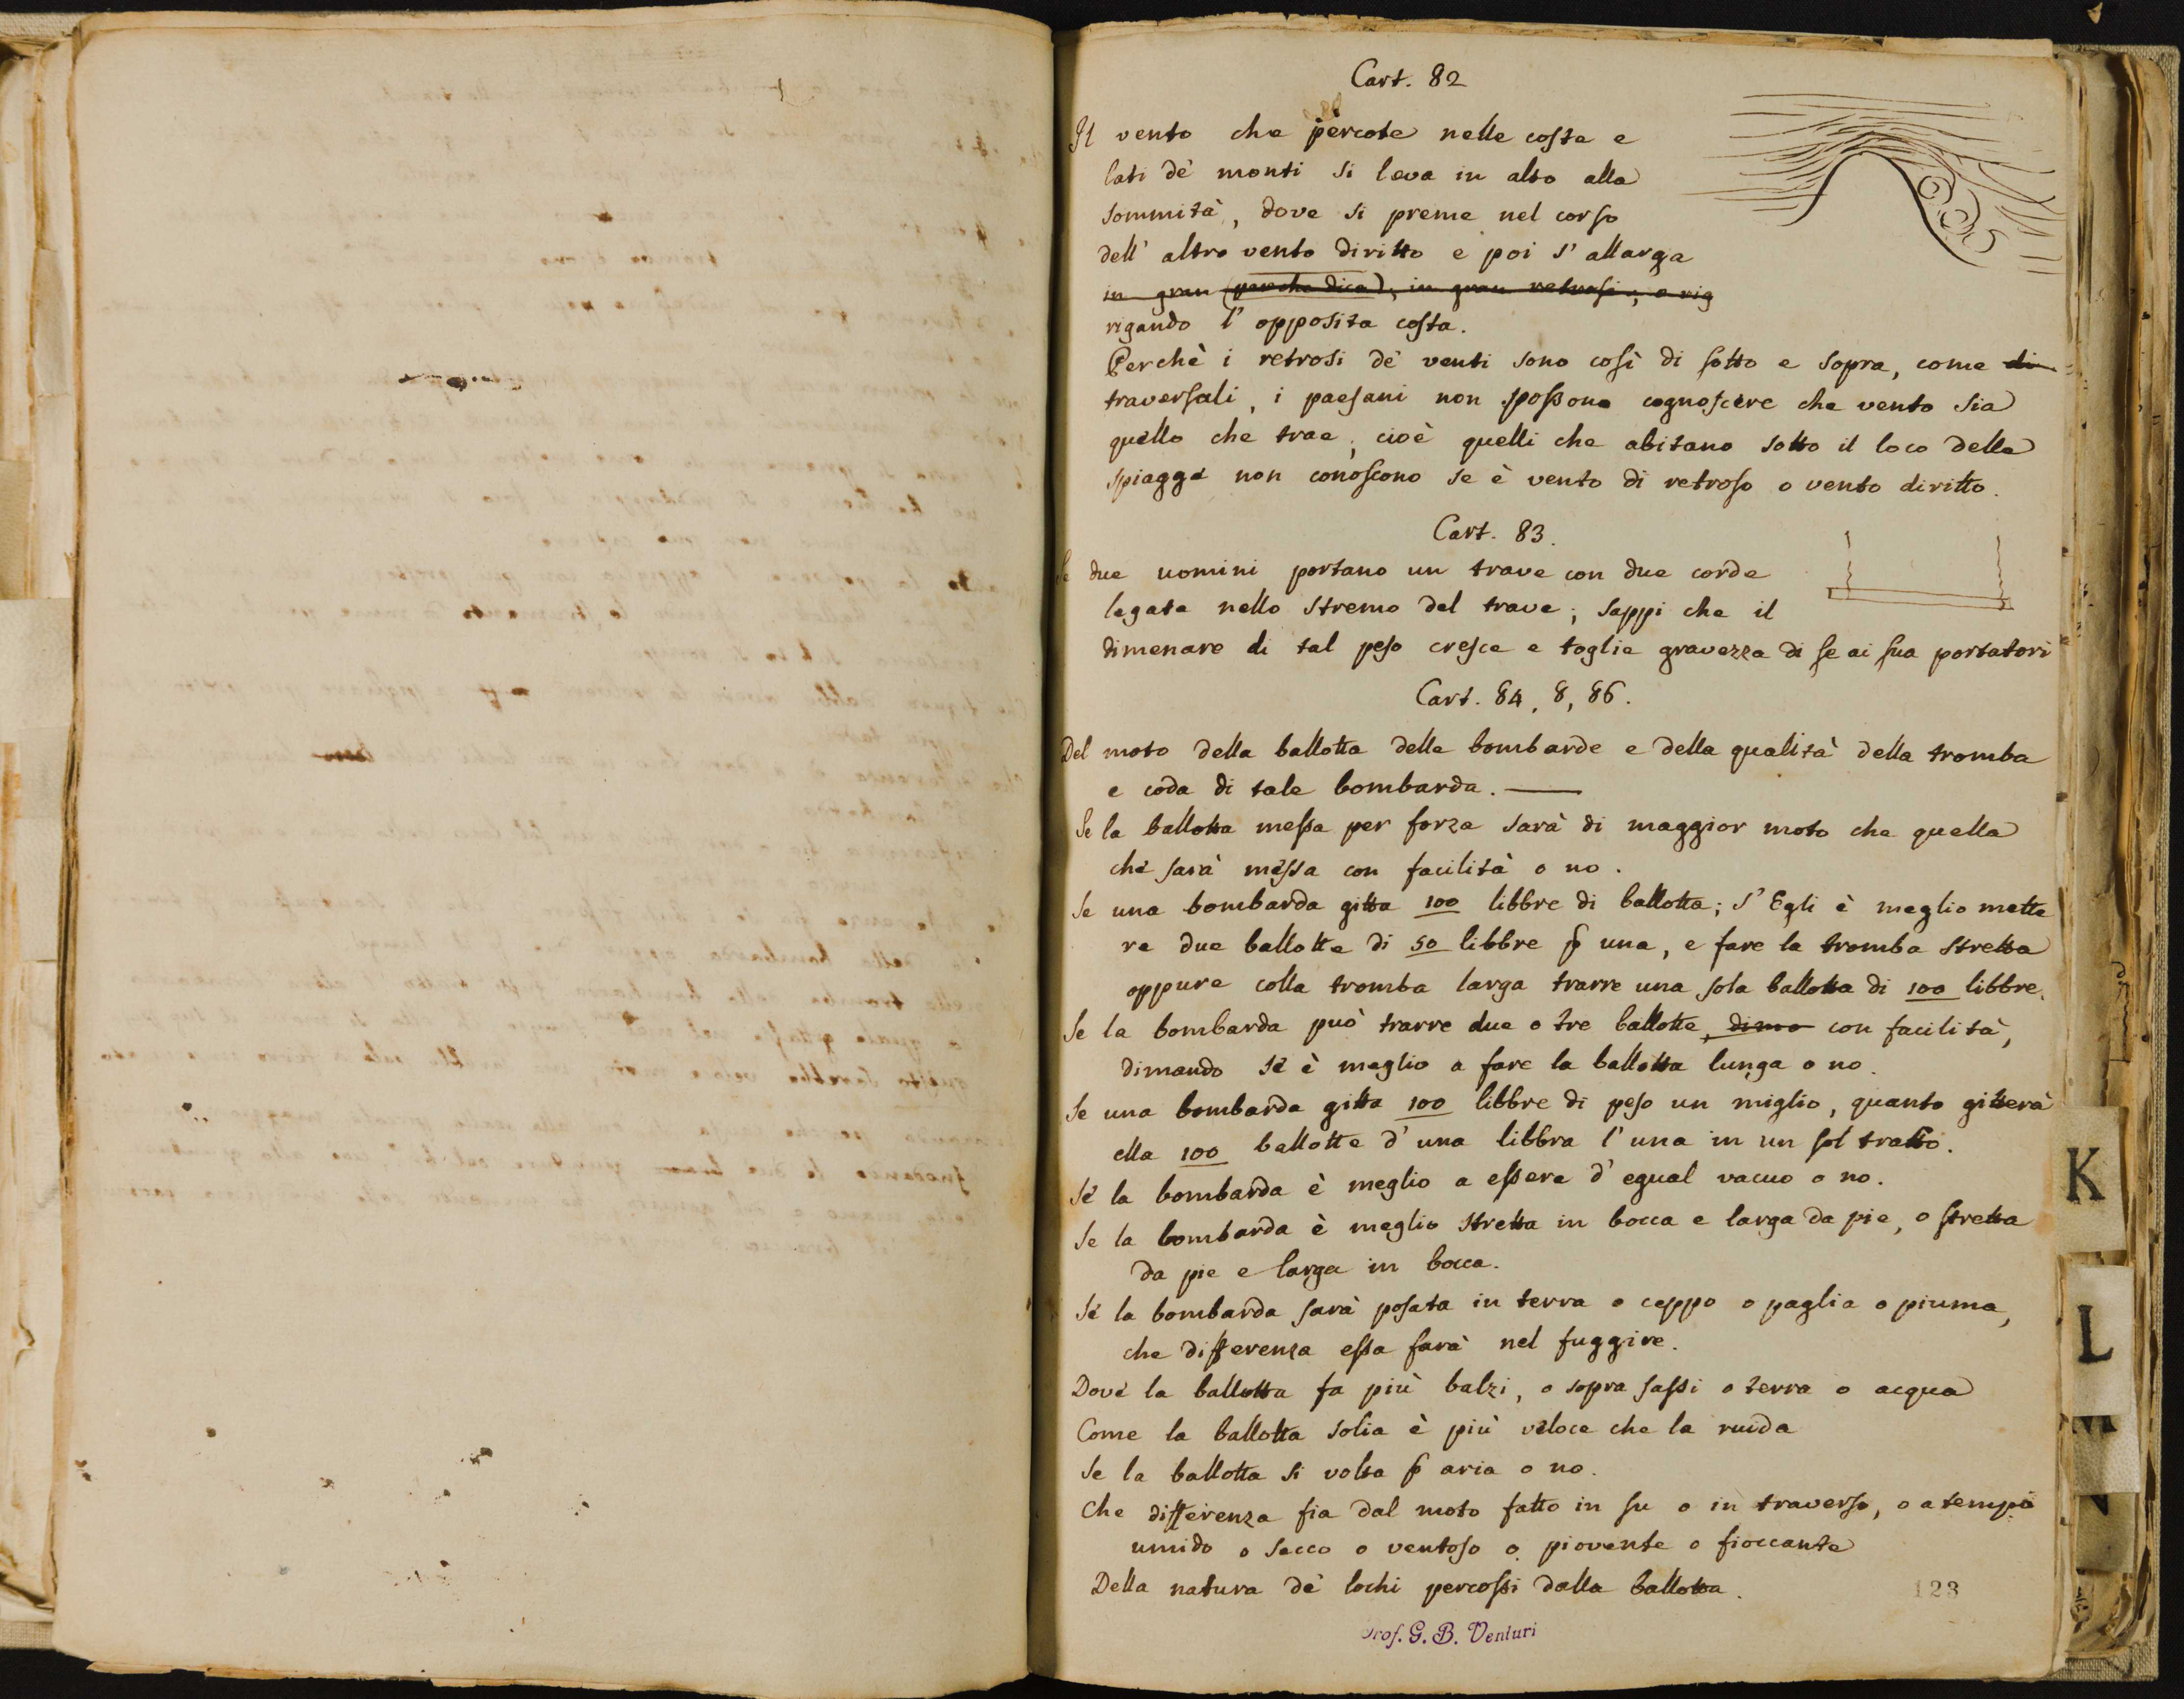 Cart. 82
Il vento che percote nelle coste e
lati de' monti si leva in alto alla
sommità, dove si preme nel corso
dell' altro vento diritto e poi s' allarga
in gran (perche dica); in gran retrosi; e rig
rigando l' opposita costa.
Perchè i retrosi de' venti sono così di sotto e sopra, come di
traversali, i paesani non possono cognoscere che vento sia
quello che trae; cioè quelli che abitano sotto il loco delle
spiagge non conoscono se è vento di retroso o vento diritto.
Cart. 83.
Se due uomini portano un trave con due corde
legate nello stremo del trave; sappi che il
dimenare di tal peso cresce e toglie gravezza di se ai sua portatori
Cart. 84, 8, 86.
Del moto della ballotta delle bombarde e della qualità della tromba
e coda di tale bombarda.
Se la ballotta messa per forza sarà di maggior moto che quella
che sarà messa con facilità o no.
Se una bombarda gitta 100 libbre di ballotta; s' Egli è meglio mette
re due ballotte di 50 libbre p una, e fare la tromba stretta
oppure colla tromba larga trarre una sola ballotta di 100 libbre.
Se la bombarda può trarre due o tre ballotte, dimo con facilità,
dimando se è meglio a fare la ballotta lunga o no.
Se una bombarda gitta 100 libbre di peso un miglio, quanto gitterà
ella 100 ballotte d' una libbra l' una in un sol tratto.
Se la bombarda è meglio a essere d' egual vacuo o no.
Se la bombarda è meglio stretta in bocca e larga da pie, o stretta
da pie e larga in bocca.
Se la bombarda sarà posata in terra o ceppo o paglia o piuma,
che differenza essa farà nel fuggire.
Dove la ballotta fa più balzi, o sopra sassi o terra o acqua
Come la ballotta solia è più veloce che la ruida
Se la ballotta si volta p aria o no.
Che differenza fia dal moto fatto in su o in traverso, o a tempo
umido o secco o ventoso o piovente o fioccante
Della natura de' lochi percossi dalla ballotta.
123
Prof. G. B. Venturi
K
L
M
N